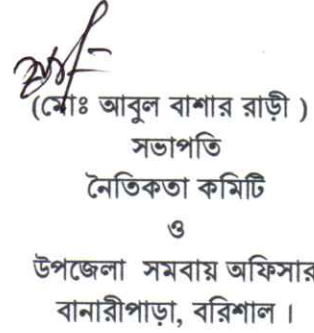 (মোঃ আবুল বাশার রাড়ী )
সভাপতি
নৈতিকতা কমিটি
ও
উপজেলা সমবায় অফিসার
বানারীপাড়া, বরিশাল ।